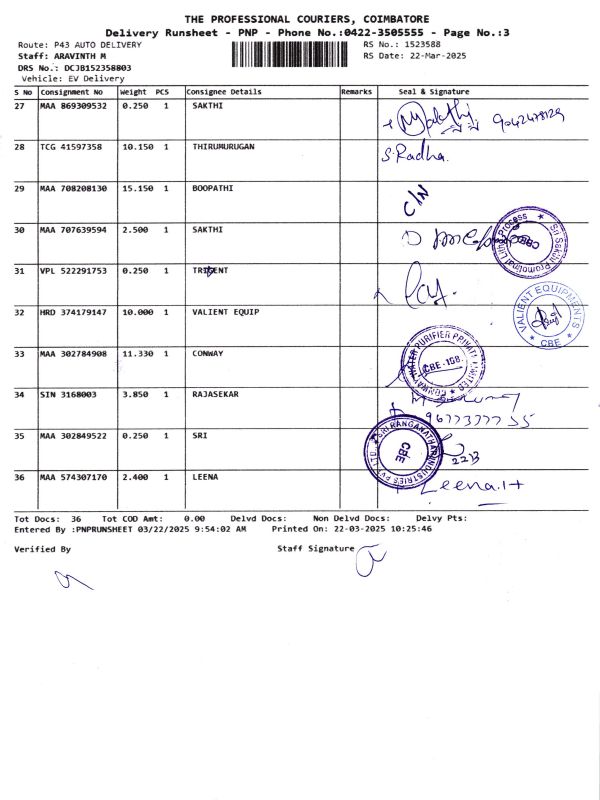 THE PROFESSIONAL COURIERS, COIMBATORE
Delivery Runsheet - PNP - Phone No.:0422-3505555 - Page No.:3
Route: P43 AUTO DELIVERY RS No.: 1523588
Staff: ARAVINTH M RS Date: 22-Mar-2025
DRS No.: DCJB152358803
Vehicle: EV Delivery
S No Consignment No Weight PCS Consignee Details Remarks Seal & Signature
27 MAA 869309532 0.250 1 SAKTHI 9042478129
28 TCG 41597358 10.150 1 THIRUMURUGAN S.Radha.
29 MAA 708208130 15.150 1 BOOPATHI C/N
30 MAA 707639594 2.500 1 SAKTHI
Sri Sakthi Promotional Litho Process CBE
31 VPL 522291753 0.250 1 TRIDENT
32 HRD 374179147 10.000 1 VALIENT EQUIP
VALIENT EQUIPMENTS CBE
33 MAA 302784908 11.330 1 CONWAY
CONWAY WATER PURIFIER PRIVATE LIMITED CBE-108
34 SIN 3168003 3.850 1 RAJASEKAR
35 MAA 302849522 0.250 1 SRI
SRI RANGANATHAR INDUSTRIES PVT LTD. CBE
36 MAA 574307170 2.400 1 LEENA
Tot Docs: 36 Tot COD Amt: 0.00 Delvd Docs: Non Delvd Docs: Delvy Pts:
Entered By :PNPRUNSHEET 03/22/2025 9:54:02 AM Printed On: 22-03-2025 10:25:46
Verified By Staff Signature